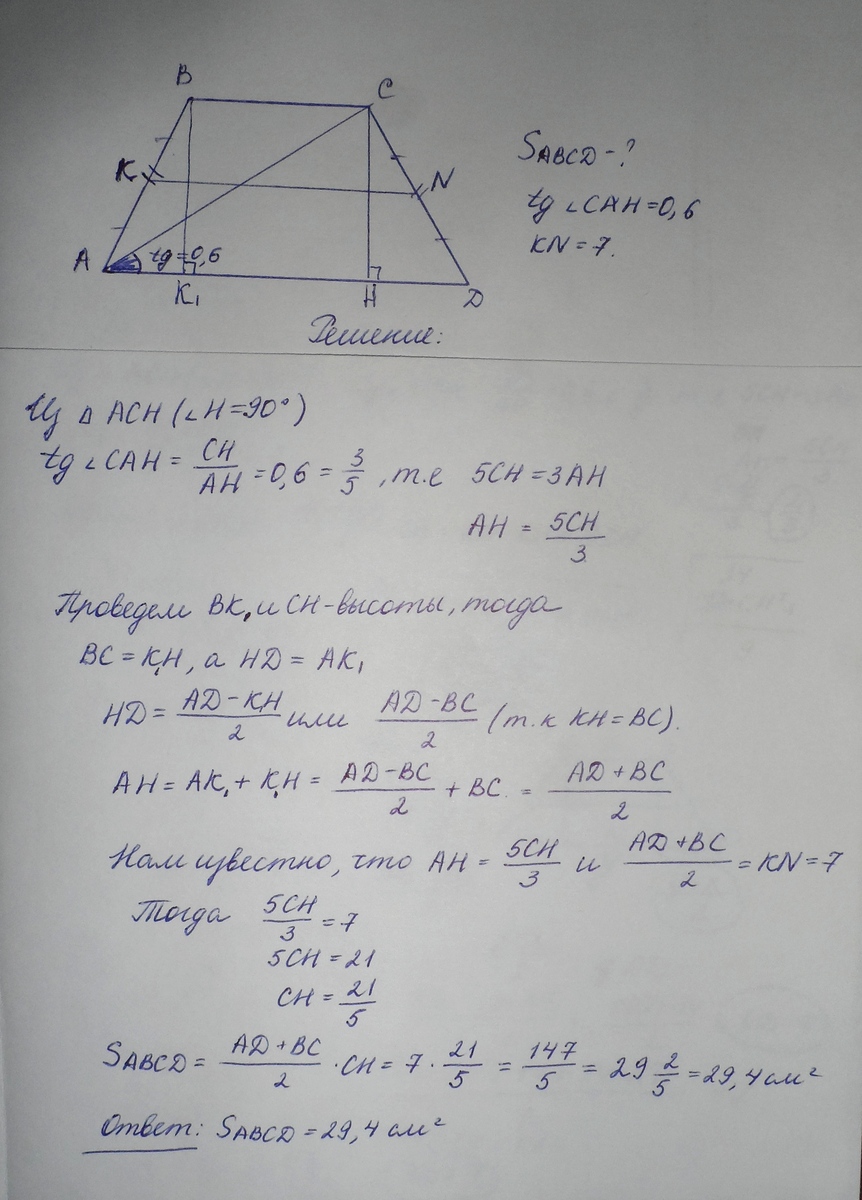 B
C
K
N
A
tg=0,6
K₁
H
D
SABCD - ?
tg ∠CAH = 0,6
KN = 7.
Решение:
Из Δ ACH (∠H=90°)
tg ∠CAH = CH/AH = 0,6 = 3/5, т.е 5CH = 3AH
AH = 5CH/3
Проведем BK₁ и CH - высоты, тогда
BC = K₁H, а HD = AK₁
HD = (AD - K₁H)/2 или (AD - BC)/2 (т.к KH = BC).
AH = AK₁ + K₁H = (AD - BC)/2 + BC = (AD + BC)/2
Нам известно, что AH = 5CH/3 и (AD + BC)/2 = KN = 7
Тогда 5CH/3 = 7
5CH = 21
CH = 21/5
SABCD = (AD + BC)/2 · CH = 7 · 21/5 = 147/5 = 29 2/5 = 29,4 см²
Ответ: SABCD = 29,4 см²